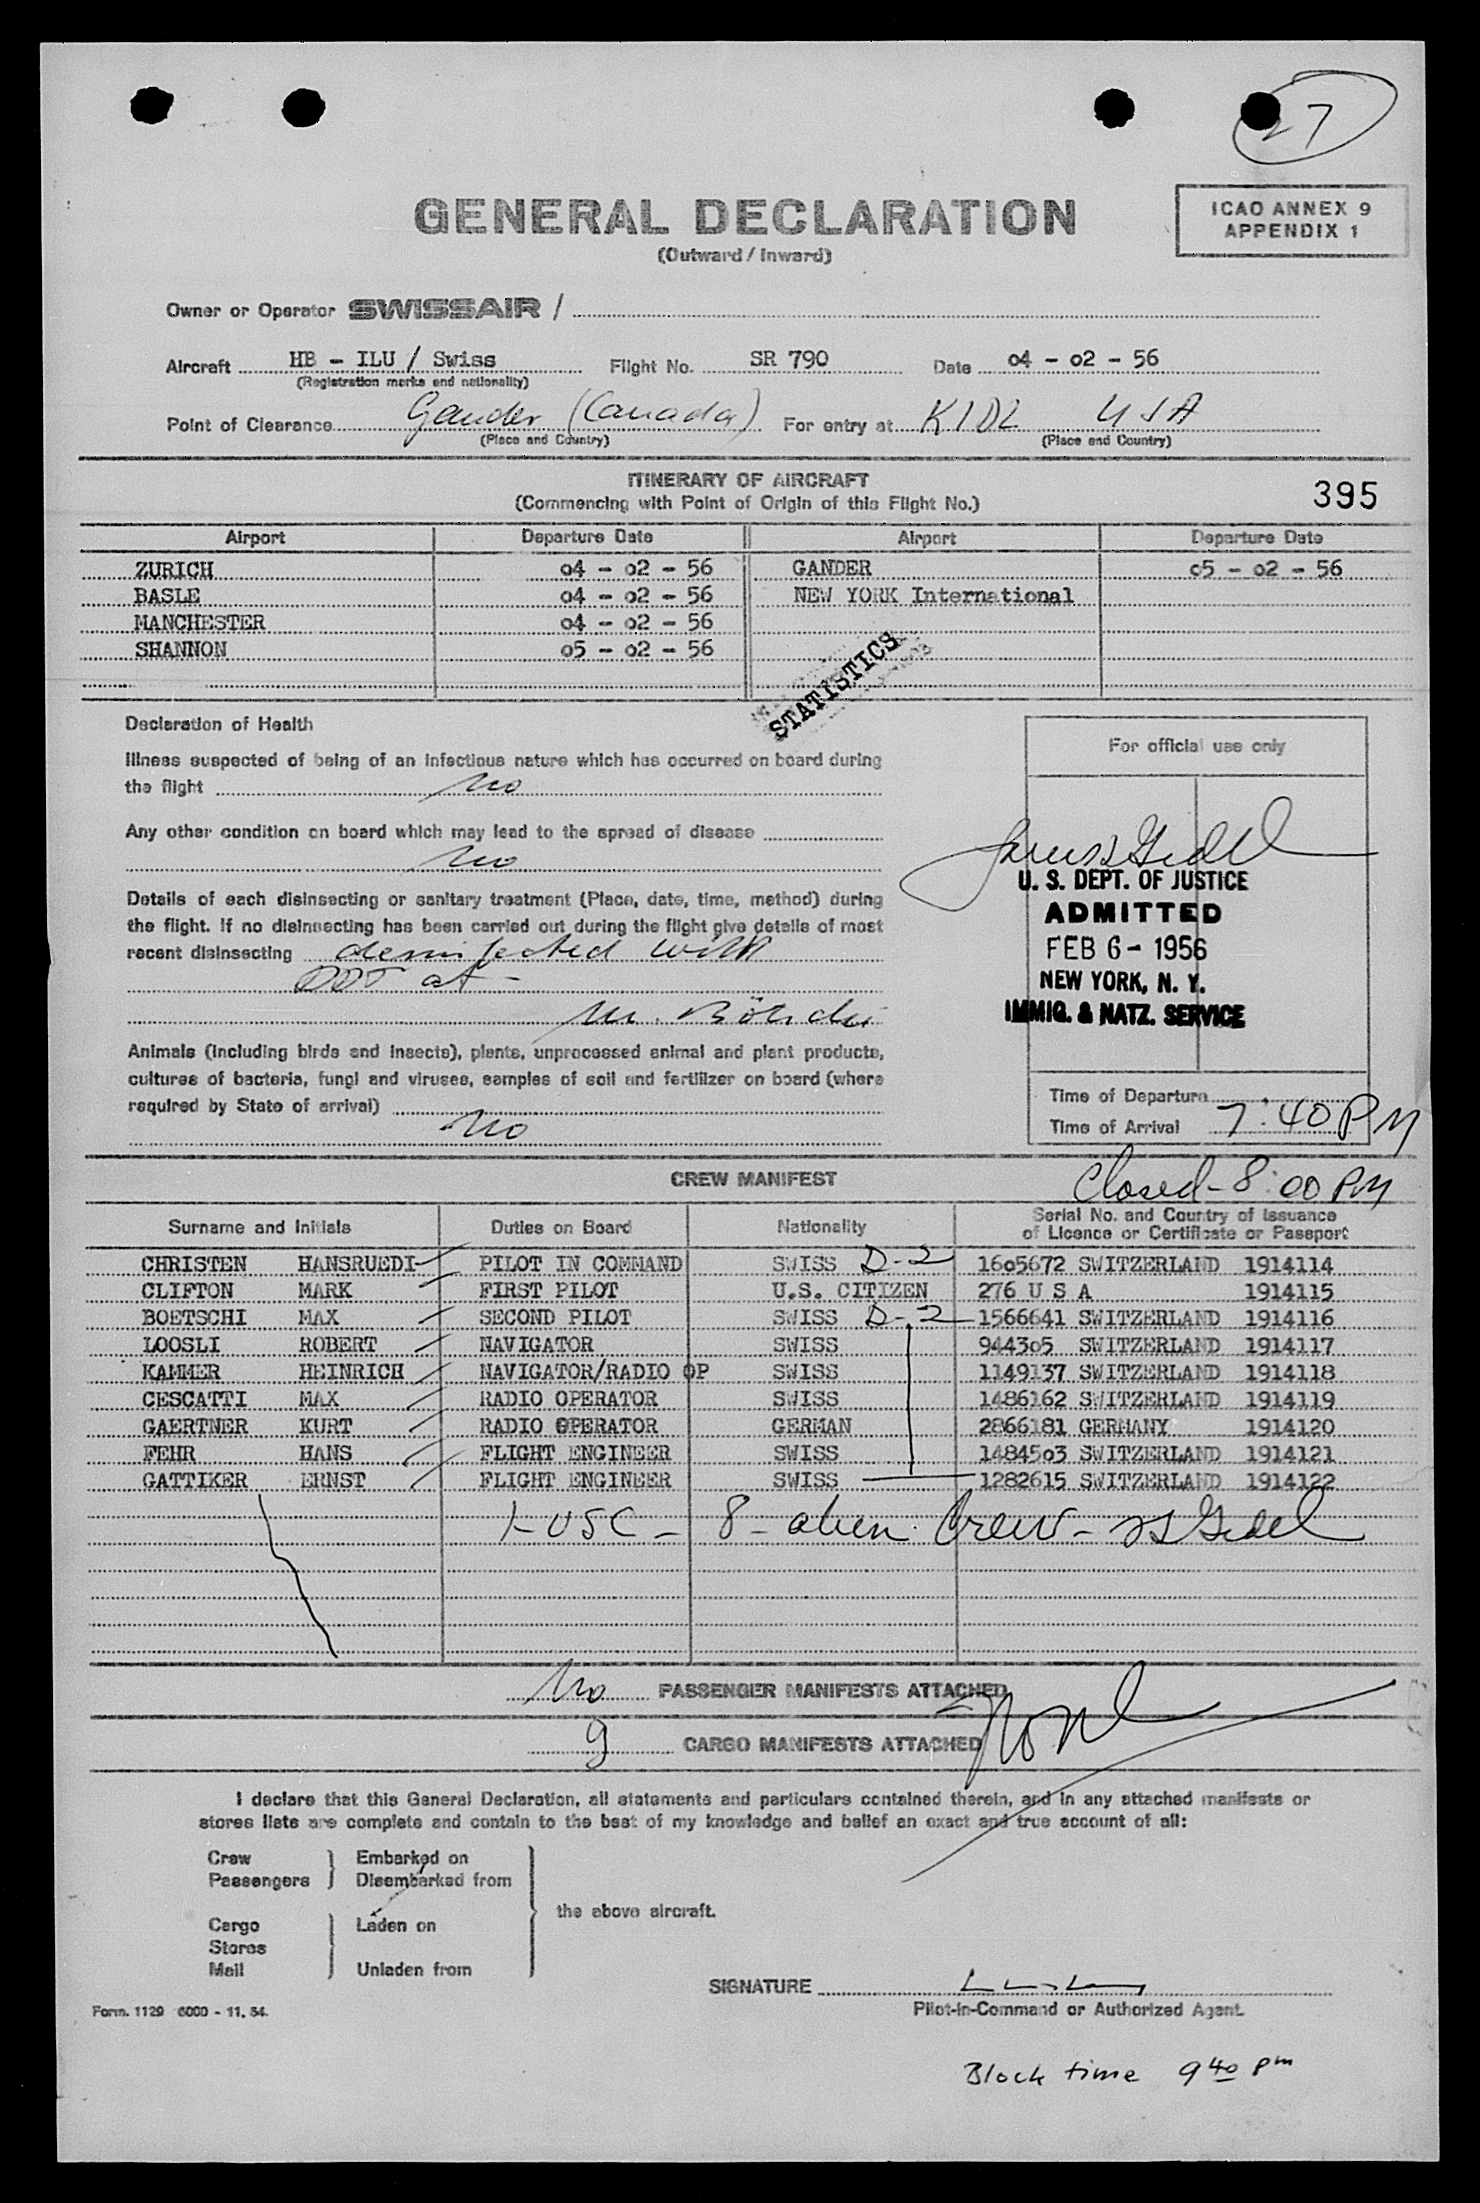 27
GENERAL DECLARATION
(Outward / Inward)
ICAO ANNEX 9
APPENDIX 1
Owner or Operator SWISSAIR /
Aircraft HB - ILU / Swiss Flight No. SR 790 Date 04 - 02 - 56
(Registration marks and nationality)
Point of Clearance Gander (Canada) For entry at KIDL USA
(Place and Country) (Place and Country)
ITINERARY OF AIRCRAFT
(Commencing with Point of Origin of this Flight No.)
395
Airport Departure Date Airport Departure Date
ZURICH 04 - 02 - 56 GANDER 05 - 02 - 56
BASLE 04 - 02 - 56 NEW YORK International
MANCHESTER 04 - 02 - 56
SHANNON 05 - 02 - 56
STATISTICS
Declaration of Health
Illness suspected of being of an infectious nature which has occurred on board during
the flight no
Any other condition on board which may lead to the spread of disease
no
Details of each disinsecting or sanitary treatment (Place, date, time, method) during
the flight. If no disinsecting has been carried out during the flight give details of most
recent disinsecting desinfected with
DDT at -
Animals (including birds and insects), plants, unprocessed animal and plant products,
cultures of bacteria, fungi and viruses, samples of soil and fertilizer on board (where
required by State of arrival)
no
For official use only
U. S. DEPT. OF JUSTICE
ADMITTED
FEB 6 - 1956
NEW YORK, N. Y.
IMMIG. & NATZ. SERVICE
Time of Departure
Time of Arrival 7:40 PM
Closed - 8:00 PM
CREW MANIFEST
Surname and Initials Duties on Board Nationality Serial No. and Country of Issuance
of Licence or Certificate or Passport
CHRISTEN HANSRUEDI PILOT IN COMMAND SWISS D-2 1605672 SWITZERLAND 1914114
CLIFTON MARK FIRST PILOT U.S. CITIZEN 276 U S A 1914115
BOETSCHI MAX SECOND PILOT SWISS D-2 1566641 SWITZERLAND 1914116
LOOSLI ROBERT NAVIGATOR SWISS 944305 SWITZERLAND 1914117
KAMMER HEINRICH NAVIGATOR/RADIO OP SWISS 1149137 SWITZERLAND 1914118
CESCATTI MAX RADIO OPERATOR SWISS 1486162 SWITZERLAND 1914119
GAERTNER KURT RADIO OPERATOR GERMAN 2866181 GERMANY 1914120
FEHR HANS FLIGHT ENGINEER SWISS 1484503 SWITZERLAND 1914121
GATTIKER ERNST FLIGHT ENGINEER SWISS 1282615 SWITZERLAND 1914122
1-USC - 8 - alien Crew -
No PASSENGER MANIFESTS ATTACHED
9 CARGO MANIFESTS ATTACHED
None
I declare that this General Declaration, all statements and particulars contained therein, and in any attached manifests or
stores lists are complete and contain to the best of my knowledge and belief an exact and true account of all:
Crew Embarked on
Passengers Disembarked from
the above aircraft.
Cargo Laden on
Stores
Mail Unladen from
SIGNATURE
Pilot-in-Command or Authorized Agent.
Form. 1129 6000 - 11. 54.
Block time 9 40 pm